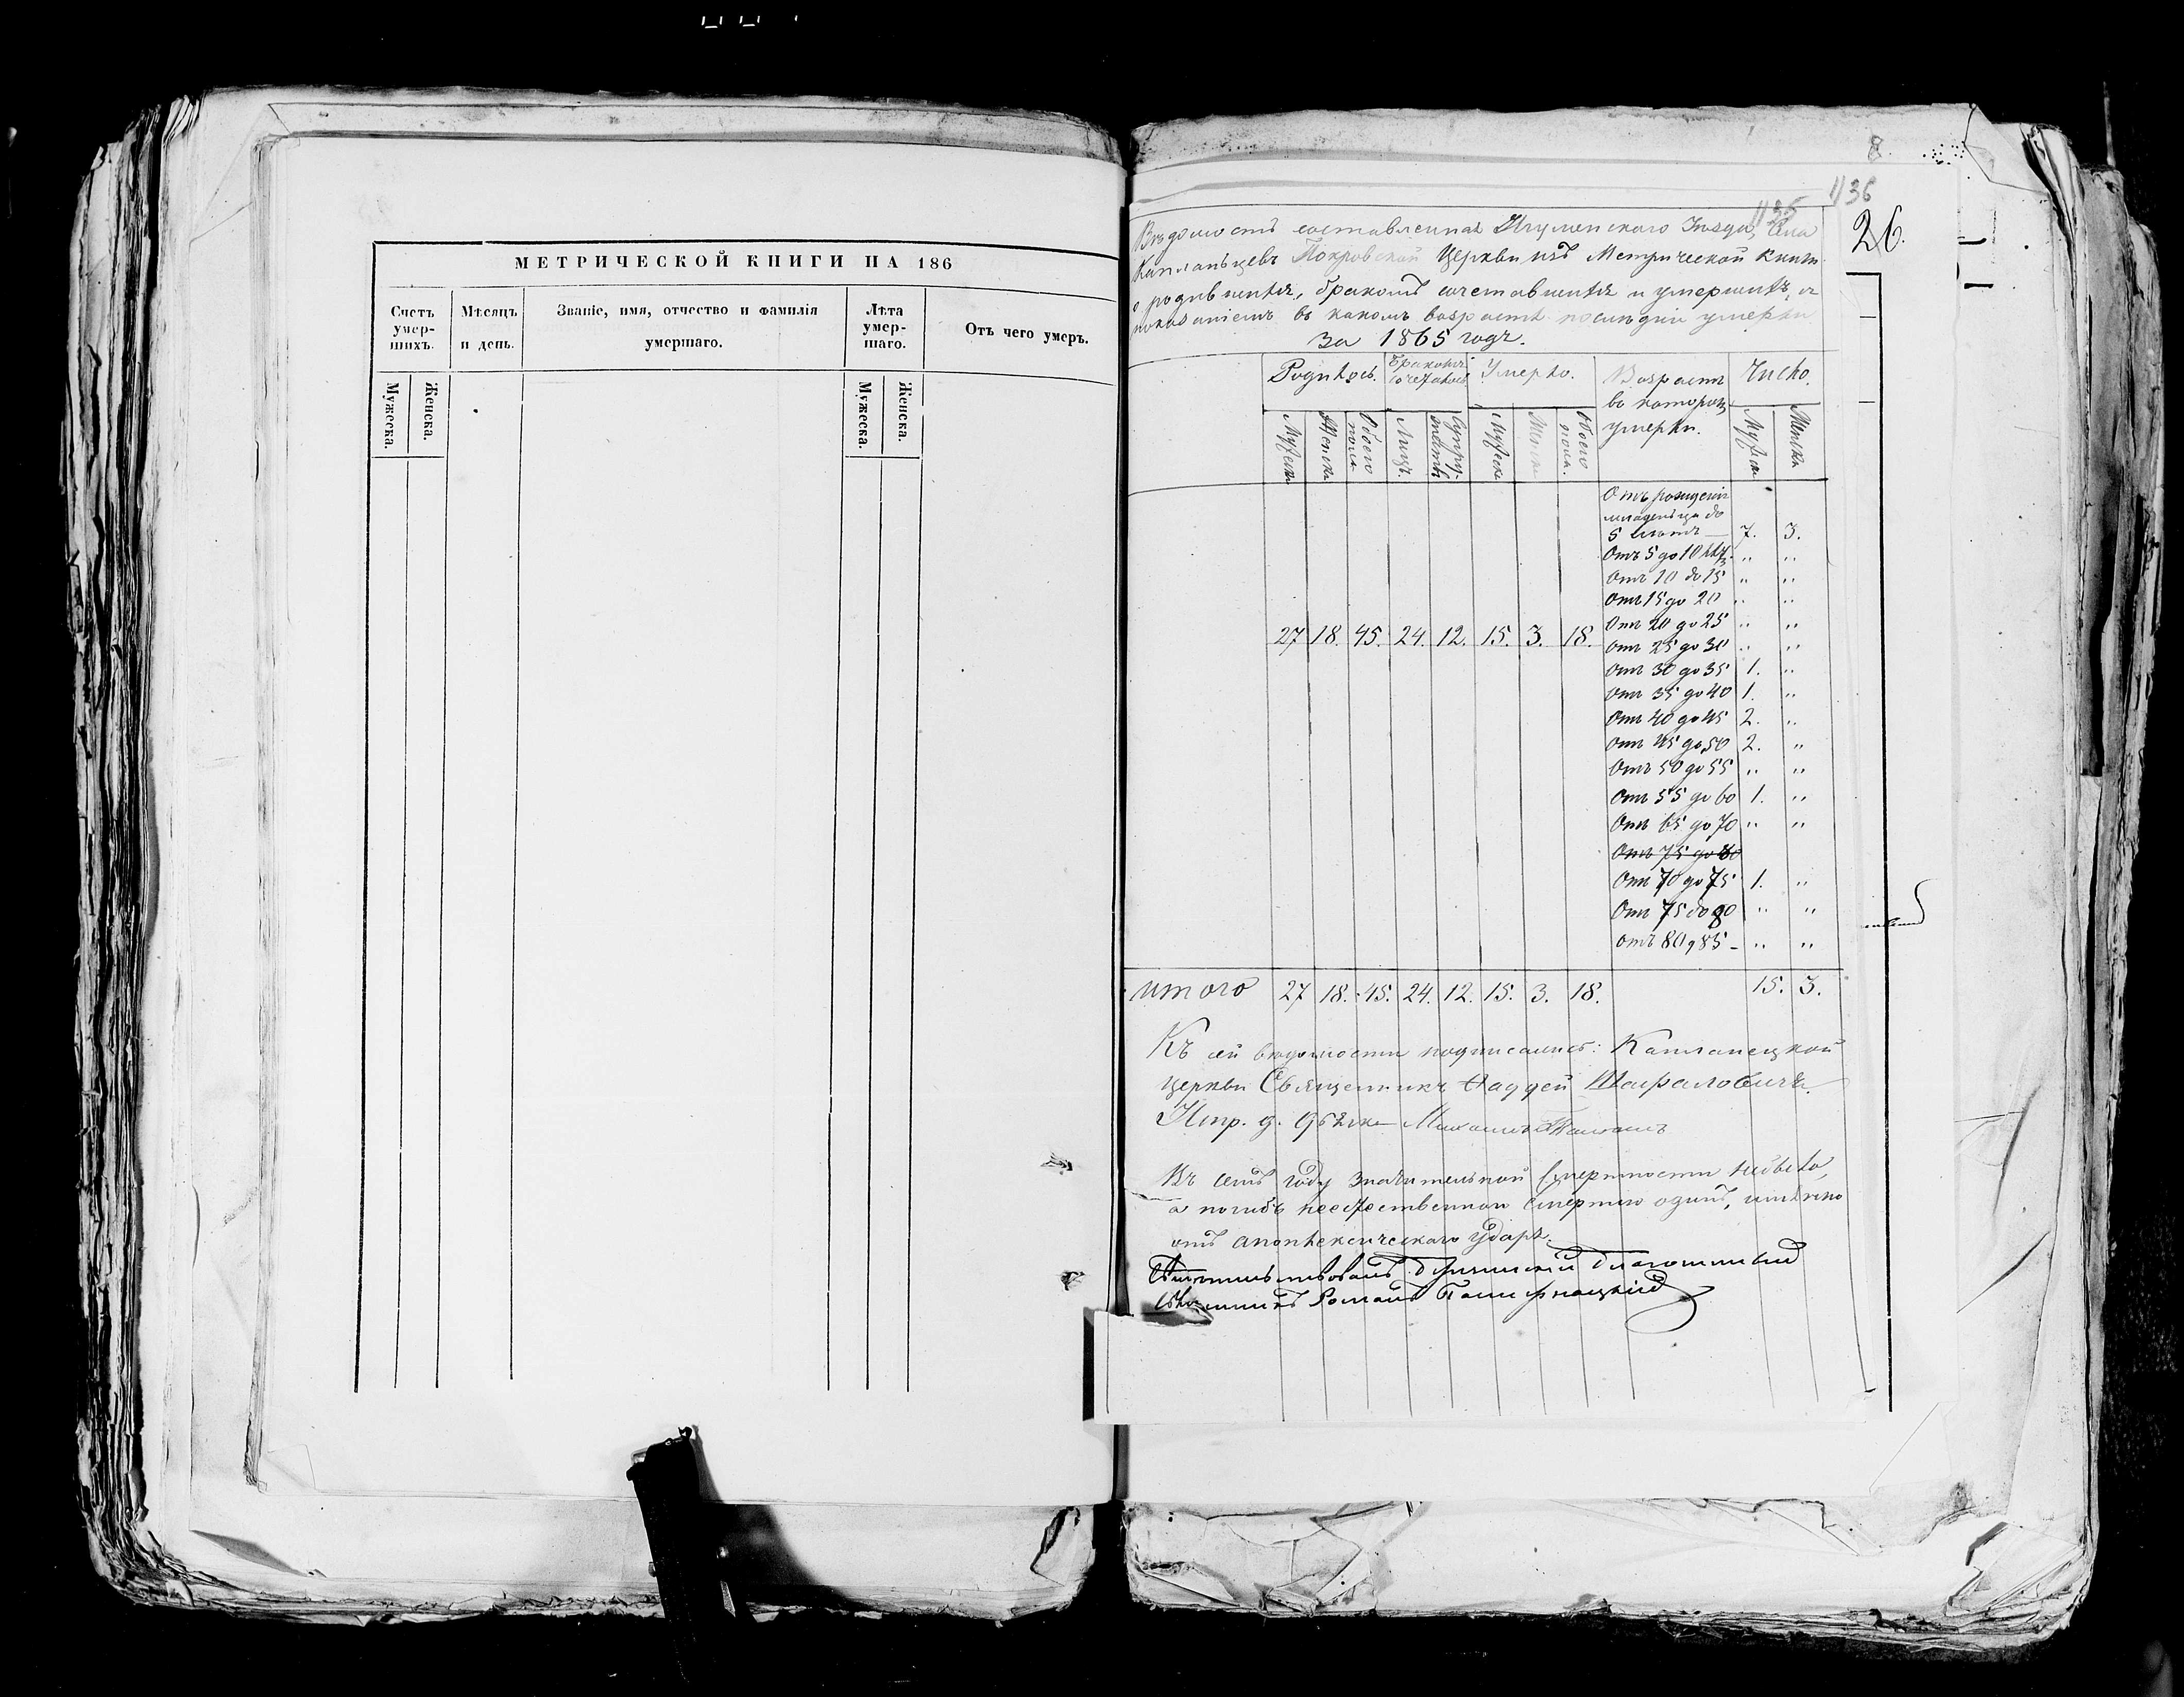 МЕТРИЧЕСКОЙ КНИГИ НА 186
Счетъ умер-шихъ.
Мѣсяцъ и день.
Званіе, имя, отчество и фамилія умершаго.
Лѣта умер-шаго.
Отъ чего умеръ.
Мужеска.
Женска.
Мужеска.
Женска.
8.
1136
1135
26.
Вѣдомость составленная Игуменскаго Уѣзда, Села
Капланьцевъ Покровской Церкви изъ Метрической книги
о родившихся, бракомъ сочетавшихся и умершихъ, съ
показаніемъ въ какомъ возрастѣ послѣдніе умерли
за 1865 годъ.
Родилось.
Бракомъ сочеталось
Умерло.
Возрастъ въ которомъ умерли.
Число.
Мужеска
Женска
Обоего пола.
Лицъ.
Супружествъ
Мужеска
Женска
Обоего пола.
Мужеска
Женска
Отъ рожденія
младенца до
5 лѣтъ — 7. 3.
Отъ 5 до 10 лѣтъ „ „
Отъ 10 до 15 „ „
Отъ 15 до 20 „ „
Отъ 20 до 25 „ „
27 18. 45. 24. 12. 15. 3. 18.
Отъ 25 до 30 „ „
Отъ 30 до 35 1. „
Отъ 35 до 40 1. „
Отъ 40 до 45 2. „
Отъ 45 до 50 2. „
Отъ 50 до 55 „ „
Отъ 55 до 60 1. „
Отъ 65 до 70 „ „
Отъ 75 до 80
Отъ 70 до 75 1. „
Отъ 75 до 80 „ „
Отъ 80 д 85 – „ „
итого 27 18. 45. 24. 12. 15. 3. 18. 15. 3.
Къ сей вѣдомости подписались: Капланецкой
Церкви Священникъ Фаддей
Михаилъ
Въ семъ году значительной смертности небыло,
а погибъ неестественною смертію одинъ, именно
отъ апоплексическаго удара.
Благочинный
Священникъ Романъ